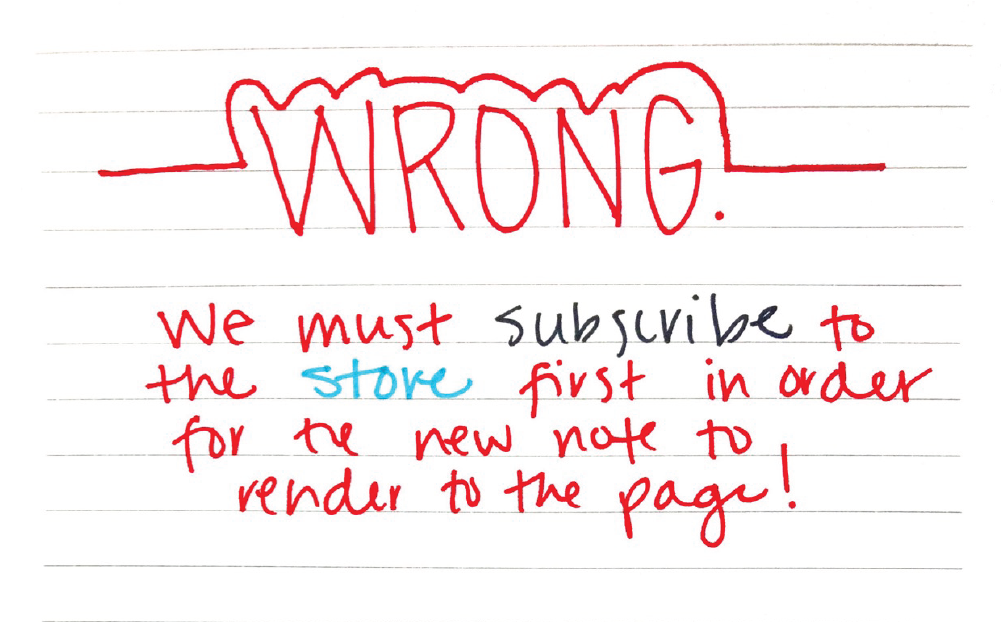 WRONG.
We must subscribe to
the store first in order
for the new note to
render to the page!